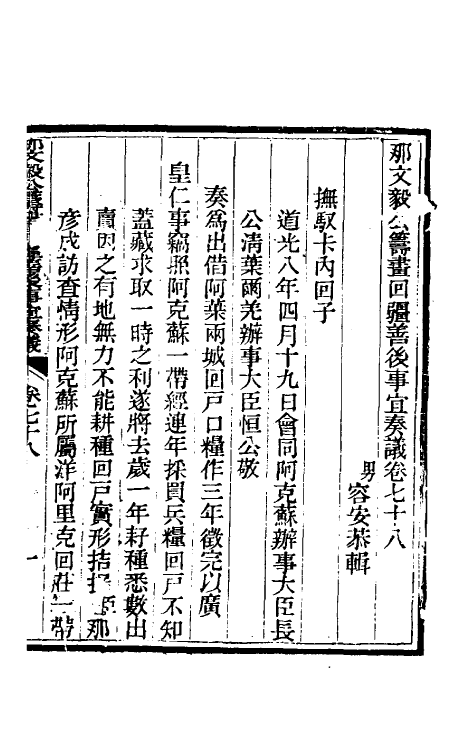 那文毅公籌畫回疆善後事宜奏議卷七十八
男容安恭輯
撫馭卡內回子
道光八年四月十九日會同阿克蘇辦事大臣長
公清葉爾羌辦事大臣恒公敬
奏為出借阿葉兩城回戶口糧作三年徵完以廣
皇仁事竊照阿克蘇一帶經連年採買兵糧回戶不知
蓋藏求取一時之利遂將去歲一年籽種悉數出
賣因之有地無力不能耕種回戶實形拮据臣那
彥成訪查情形阿克蘇所屬洋阿里克回莊一帶
卷七十八
一